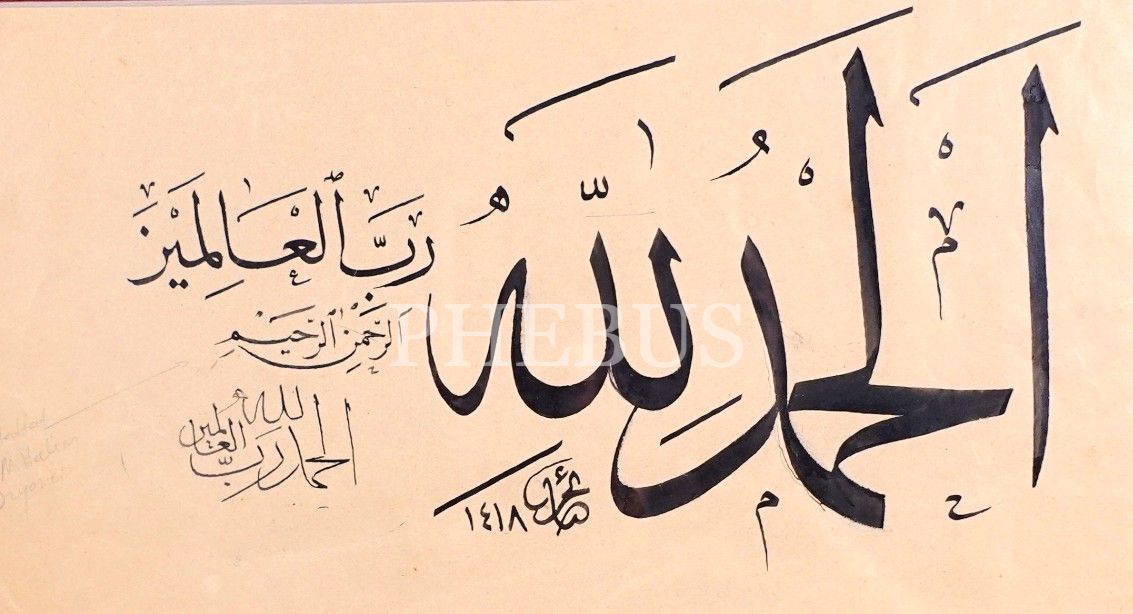 الحمد لله
رَبِّ ٱلْعَالَمِينَ
الرَّحْمٰنِ ٱلرَّحِيمِ
الحمد لله رب العالمين
١٤١٨
PHEBUS